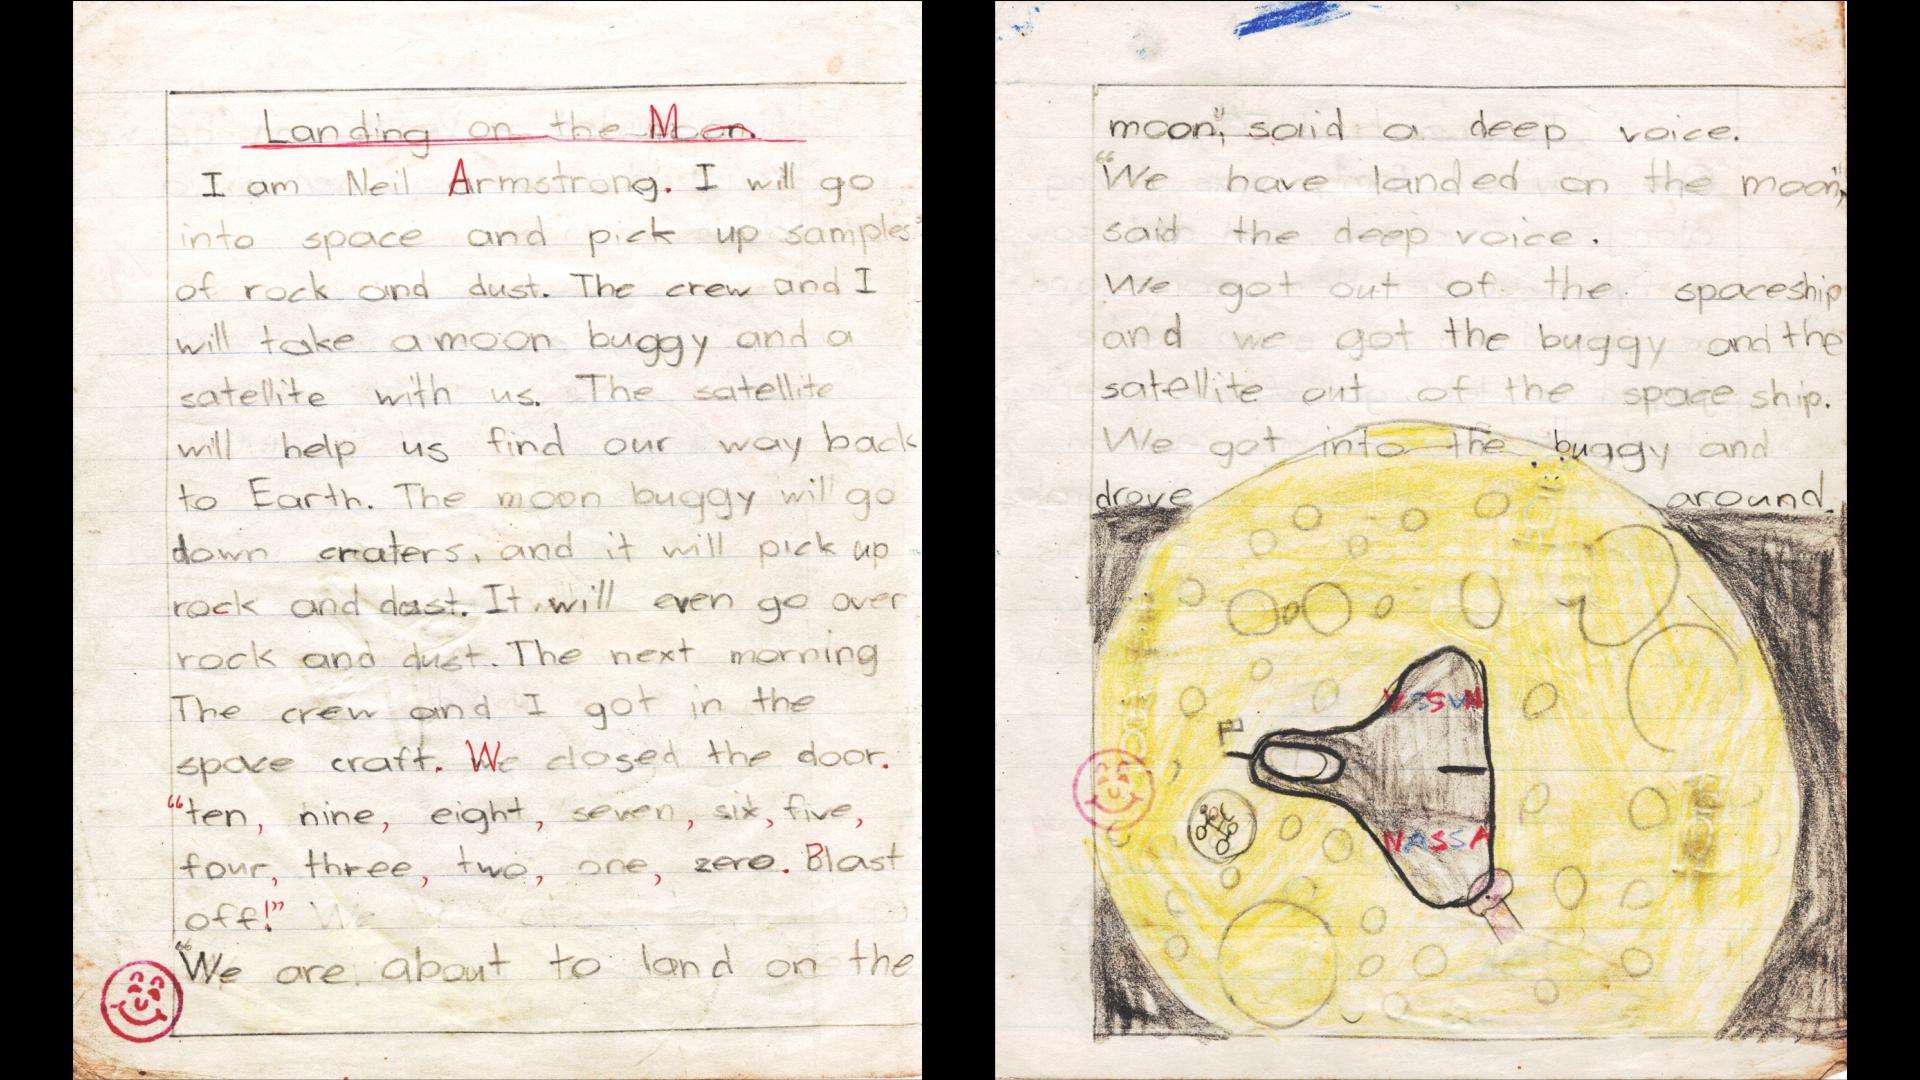 Landing on the Moon
I am Neil Armstrong. I will go
into space and pick up samples
of rock and dust. The crew and I
will take a moon buggy and a
satellite with us. The satellite
will help us find our way back
to Earth. The moon buggy will go
down craters, and it will pick up
rock and dust. It will even go over
rock and dust. The next morning
The crew and I got in the
space craft. We closed the door.
“ten, nine, eight, seven, six, five,
four, three, two, one, zero. Blast
off!” We
“We are about to land on the
moon”, said a deep voice.
“We have landed on the moon”,
said the deep voice.
We got out of the spaceship
and we got the buggy and the
satellite out of the space ship.
We got into the buggy and
drove around.
NASSA